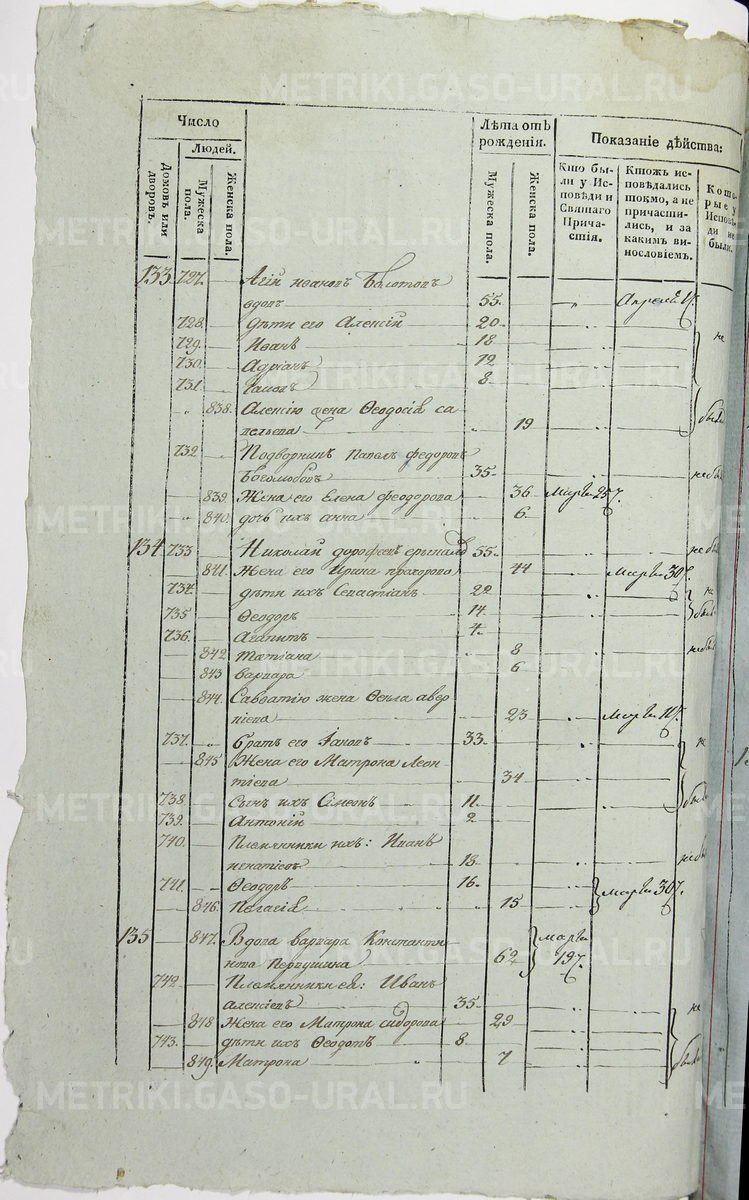 METRIKI.GASO-URAL.RU
Число
Людей.
Домовъ или дворовъ.
Мужеска пола.
Женска пола.
Лѣта отъ рожденія.
Мужеска пола.
Женска пола.
Показаніе дѣйства:
Кто бы-
ли у Ис-
повѣди и
Святаго
Прича-
стія.
Ктожъ ис-
повѣдались
токмо, а не
причасти-
лись, и за
какимъ ви-
нословіемъ.
Кото-
рые у
Исповѣ-
ди не
были.
133 727. Агій Ивановъ Болотовъ
вдовъ 55. Апреля 1
728. дѣти его Алексій 20
729. Иванъ 18 не
730. Адріанъ 12
731. 8 были
838. Алексію жена Ѳеодосія са
вельева 19
732 Подворникъ Павелъ Федоровъ
Боголюбовъ 35 не бы
839. Жена его Елена феодорова 36 Марта 25
840. дочь ихъ анна 6
134 733 Николай дорофеевъ 55 не бы
841. Жена его Ирина прохорова 44 Марта 30
734. дѣти ихъ Севастіанъ 22 не
735 Ѳеодоръ 14 были
736. Агапитъ 4
842 Татіана 8 не бы
843 варвара 6
844. Савватію жена Ѳекла авер
кіева 23 Марта
737. братъ его 33 не
845 Жена его Матрона Леон
тіева 34
738. Сынъ ихъ Сімеонъ 11 были
739. Антоній 2
740. Племянники ихъ: Иванъ
игнатіевъ 18 не бы
741. Ѳеодоръ 16. марта 30
846. Пелагія 15
135 847. Вдова варвара Константи
нова Первушина 62 марта 19
742 Племянники ея: Иванъ
алексіевъ 35 не
848 Жена его Матрона сидорова 29
743. дѣти ихъ Ѳеодотъ 8 были
849. Матрона 7